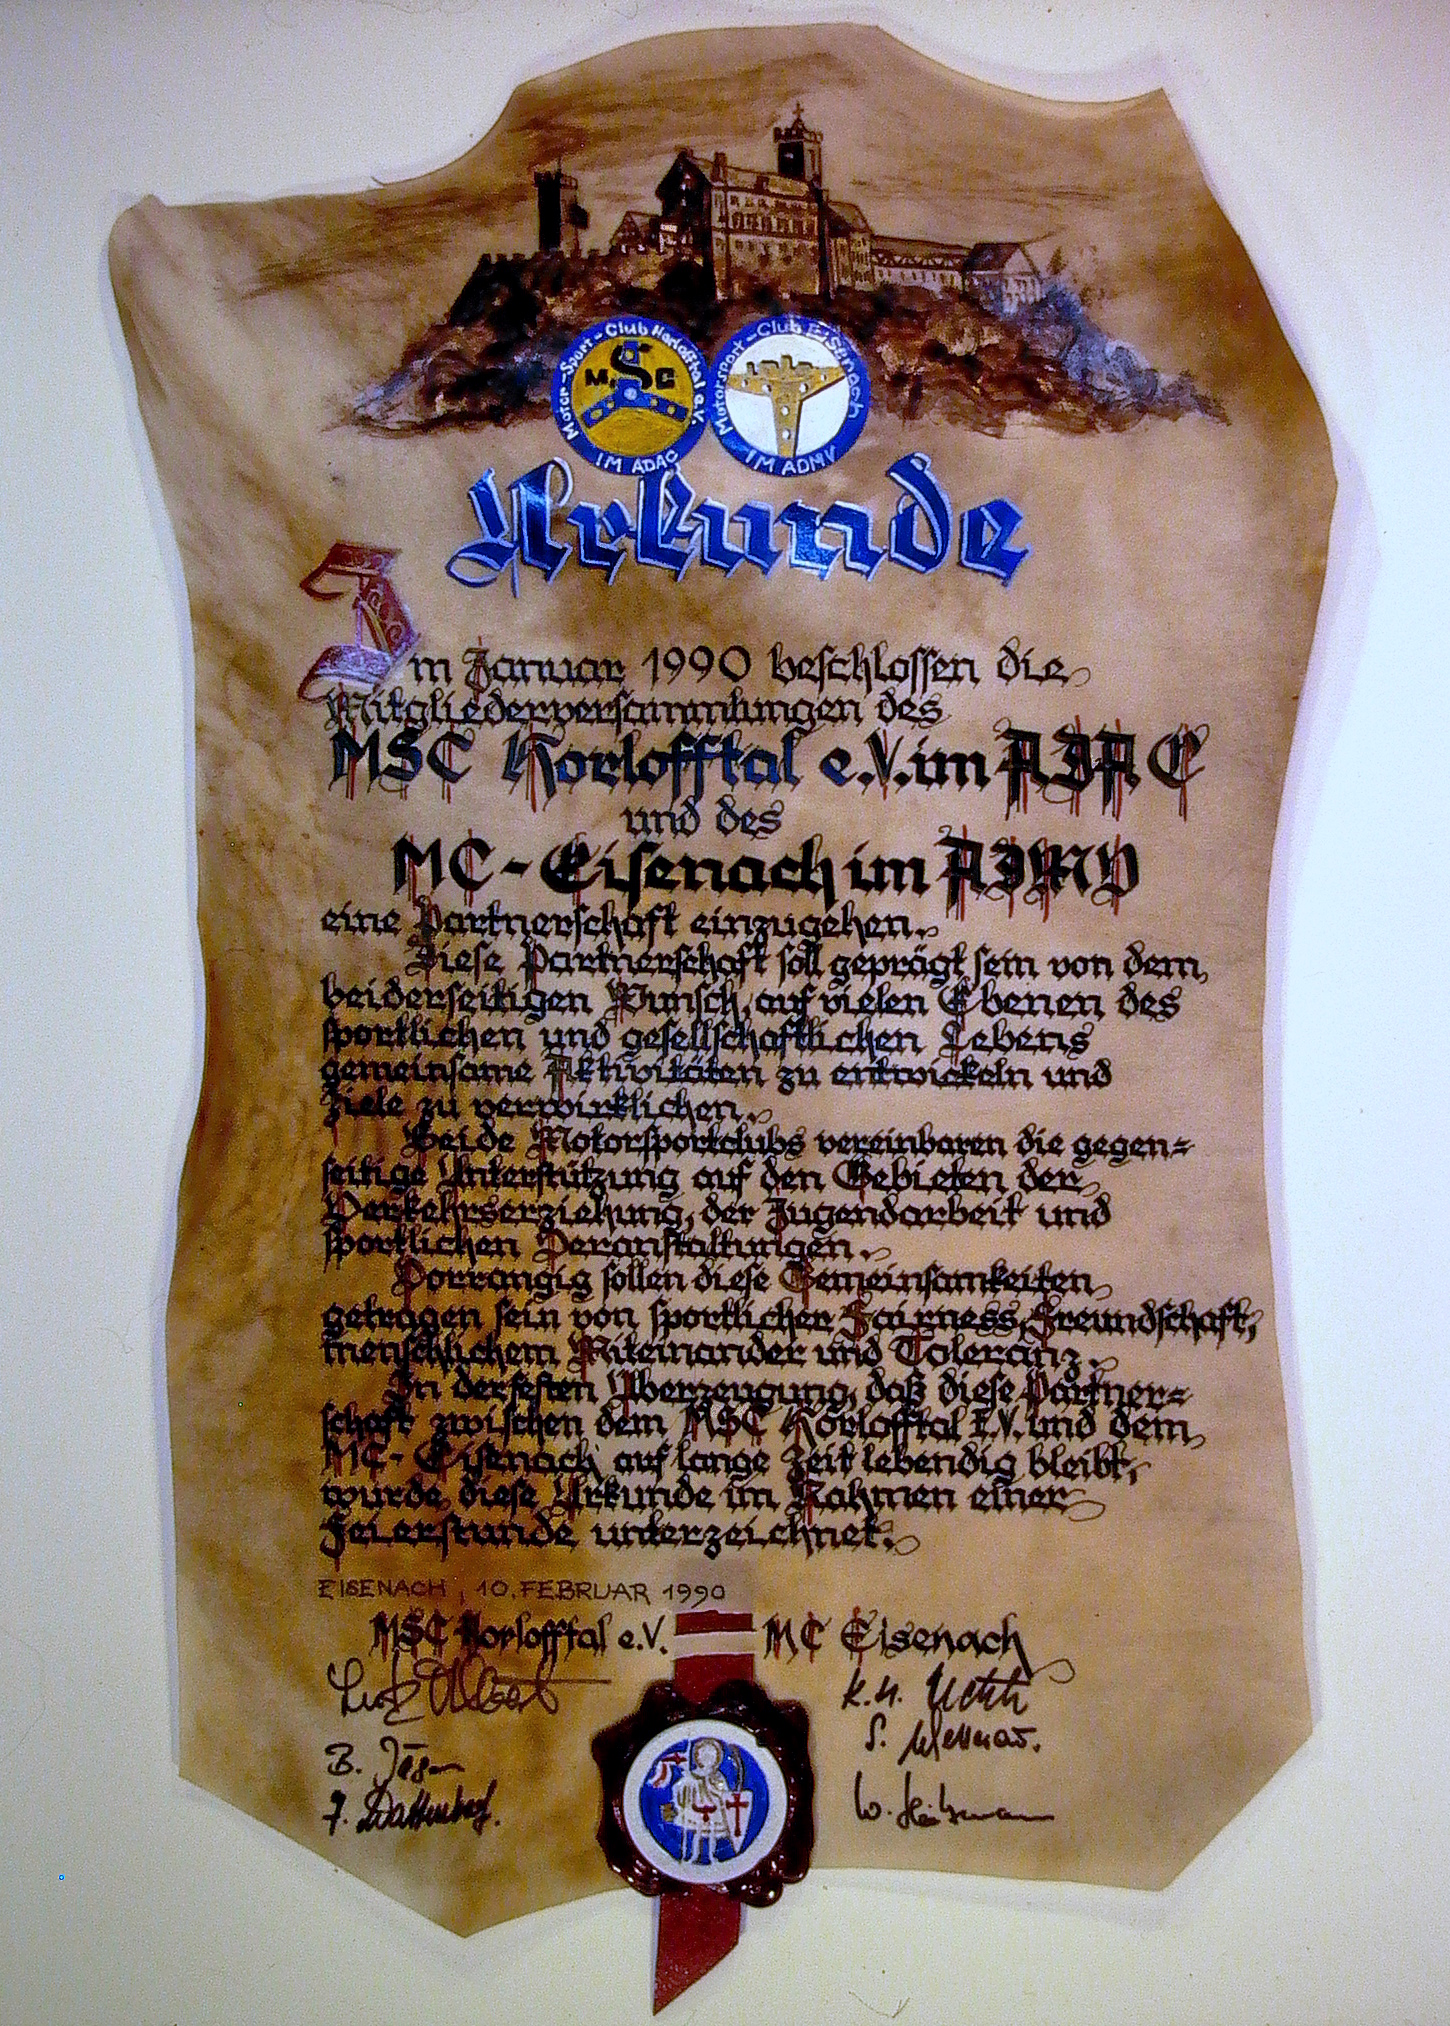 Motor-Sport-Club Horlofftal e.V.
MSC
IM ADAC
Motorsport-Club Eisenach
IM ADMV
Urkunde
Im Januar 1990 beschlossen die
Mitgliederversammlungen des
MSC Horlofftal e.V. im ADAC
und des
MC-Eisenach im ADMV
eine Partnerschaft einzugehen.
Diese Partnerschaft soll geprägt sein von dem
beiderseitigen Wunsch, auf vielen Ebenen des
sportlichen und gesellschaftlichen Lebens
gemeinsame Aktivitäten zu entwickeln und
Ziele zu verwirklichen.
Beide Motorsportclubs vereinbaren die gegen=
seitige Unterstützung auf den Gebieten der
Verkehrserziehung, der Jugendarbeit und
sportlichen Veranstaltungen.
Vorrangig sollen diese Gemeinsamkeiten
getragen sein von sportlicher Fairness, Freundschaft,
menschlichem Miteinander und Toleranz.
In der festen Überzeugung, daß diese Partner=
schaft zwischen dem MSC Horlofftal E.V. und dem
MC-Eisenach auf lange Zeit lebendig bleibt,
wurde diese Urkunde im Rahmen einer
Feierstunde unterzeichnet.
EISENACH, 10. FEBRUAR 1990
MSC Horlofftal e.V.
MC Eisenach
B. Jäger
K.H.
S.
W.